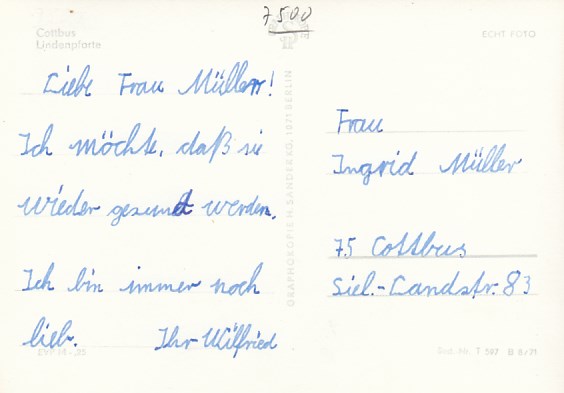 7500
Cottbus
Lindenpforte
ECHT FOTO
Liebe Frau Müller!
Ich möchte, daß sie
wieder gesund werden.
Ich bin immer noch
lieb. Ihr Wilfried
EVP M -,25
GRAPHOKOPIE H. SANDER KG, 1071 BERLIN
Frau
Ingrid Müller
75 Cottbus
Siel.-Landstr. 83
Best. Nr. T 597 B 8/71